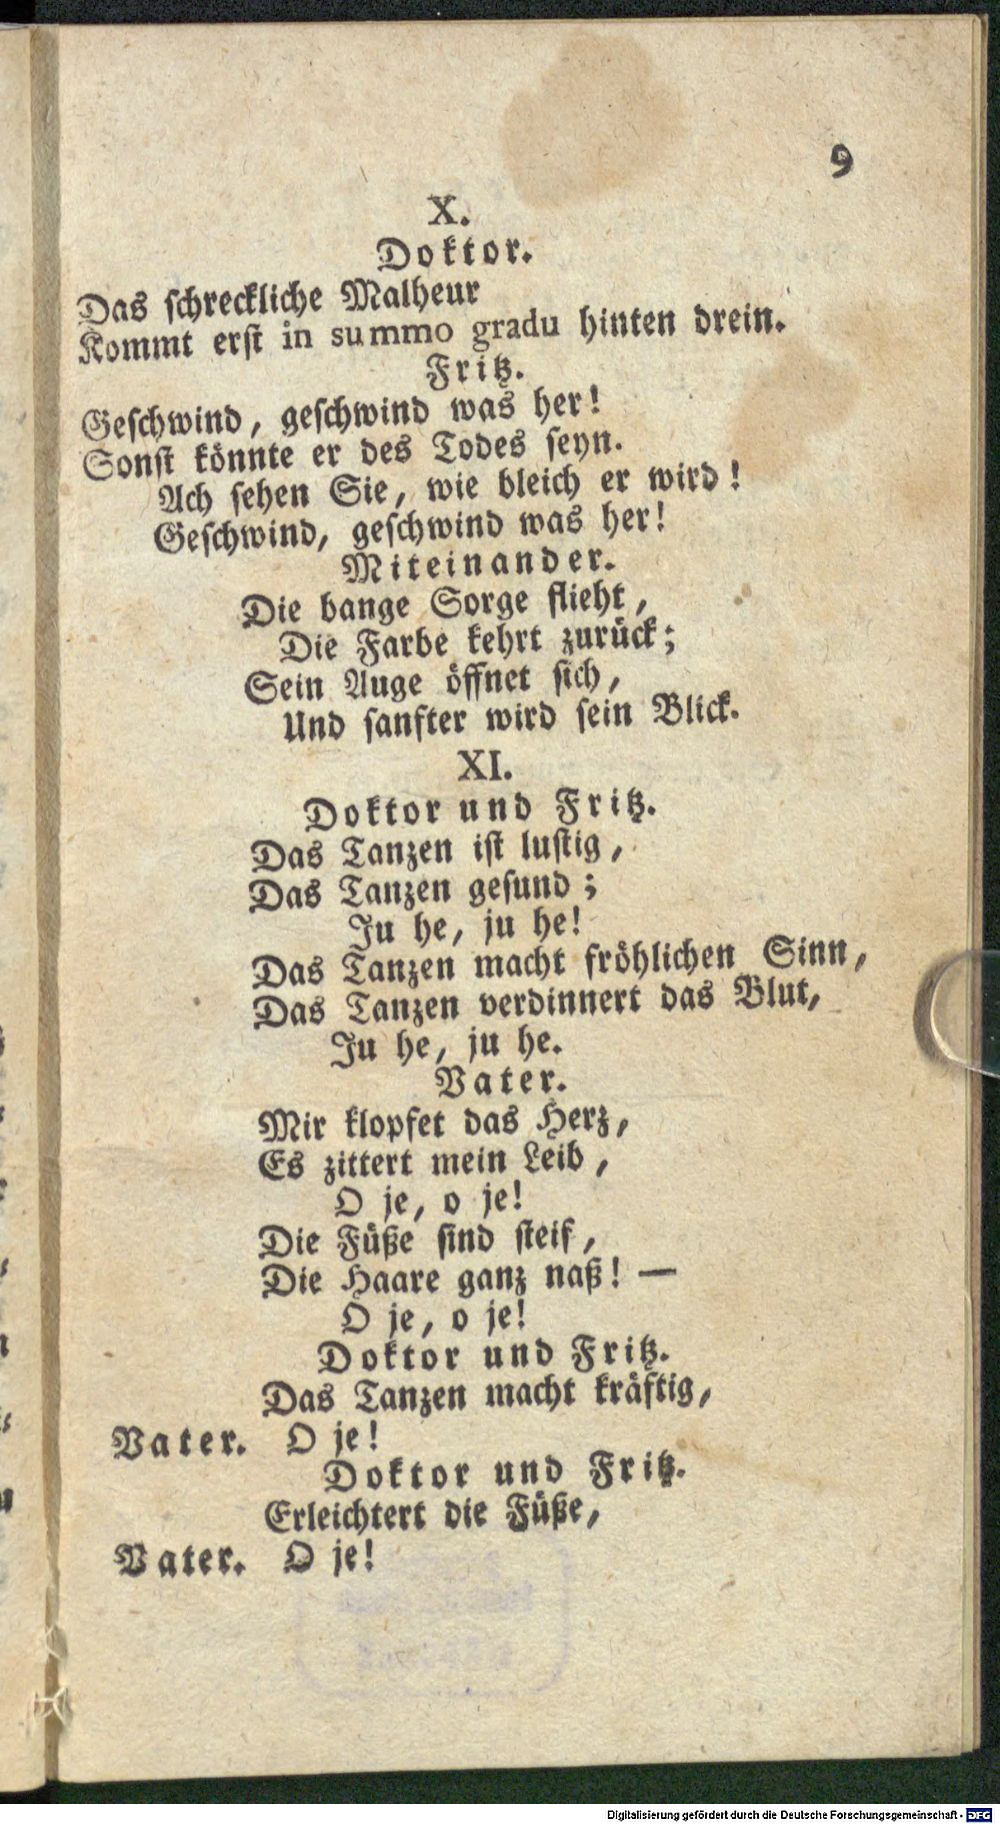 9
X.
Doktor.
Das schreckliche Malheur
Kommt erst in summo gradu hinten drein.
Fritz.
Geschwind, geschwind was her!
Sonst könnte er des Todes seyn.
Ach sehen Sie, wie bleich er wird!
Geschwind, geschwind was her!
Miteinander.
Die bange Sorge flieht,
Die Farbe kehrt zurück;
Sein Auge öffnet sich,
Und sanfter wird sein Blick.
XI.
Doktor und Fritz.
Das Tanzen ist lustig,
Das Tanzen gesund;
Ju he, ju he!
Das Tanzen macht fröhlichen Sinn,
Das Tanzen verdinnert das Blut,
Ju he, ju he.
Vater.
Mir klopfet das Herz,
Es zittert mein Leib,
O je, o je!
Die Füße sind steif,
Die Haare ganz naß! —
O je, o je!
Doktor und Fritz.
Das Tanzen macht kräftig,
Vater. O je!
Doktor und Fritz.
Erleichtert die Füße,
Vater. O je!
Digitalisierung gefördert durch die Deutsche Forschungsgemeinschaft - DFG